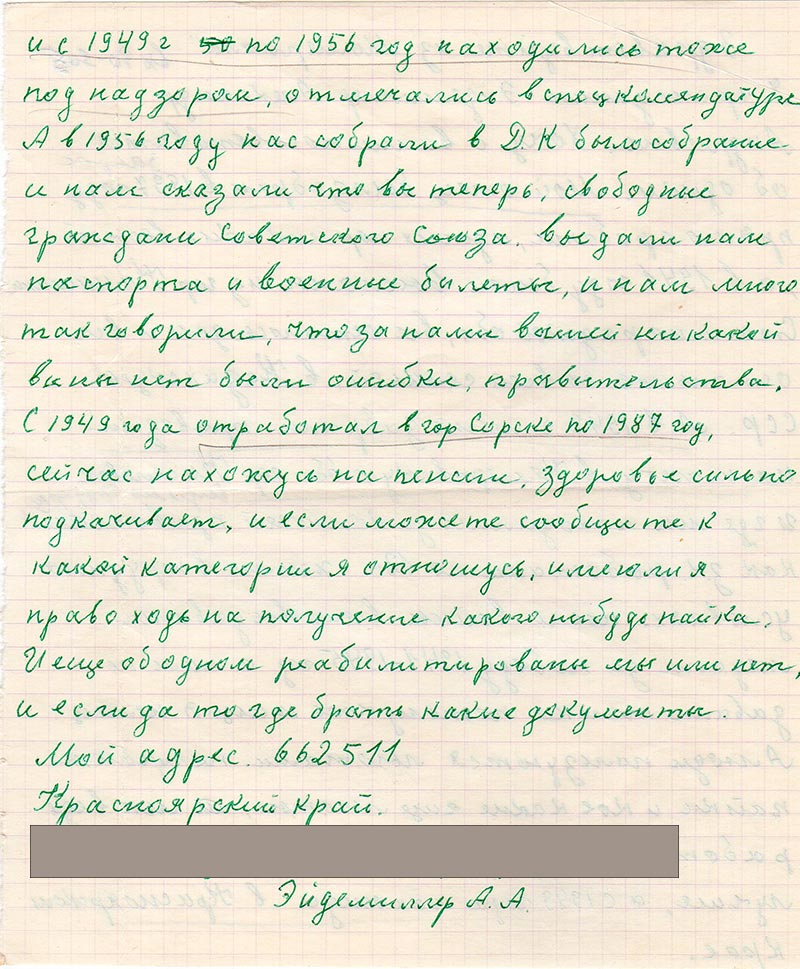 и с 1949 г 50 по 1956 год находились тоже
под надзором, отмечались в спецкомендатуре
А в 1956 году нас собрали в Д К было собрание
и нам сказали что вы теперь, свободные
граждани Советского Союза. выдали нам
паспорта и военные билеты, и нам много
так говорили, что за нами вашей ни какой
вины нет были ошибки, правительства.
С 1949 года отработал в гор Сорске по 1987 год,
сейчас нахожусь на пенсии, здоровье сильно
подкачивает, и если можете сообщите к
какой категории я отношусь, имею ли я
право ходь на получение какого нибудь пайка.
И еще об одном реабилитированы мы или нет,
и если да то где брать какие документы.
Мой адрес. 662511
Красноярский край.
Эйдемиллер А. А.